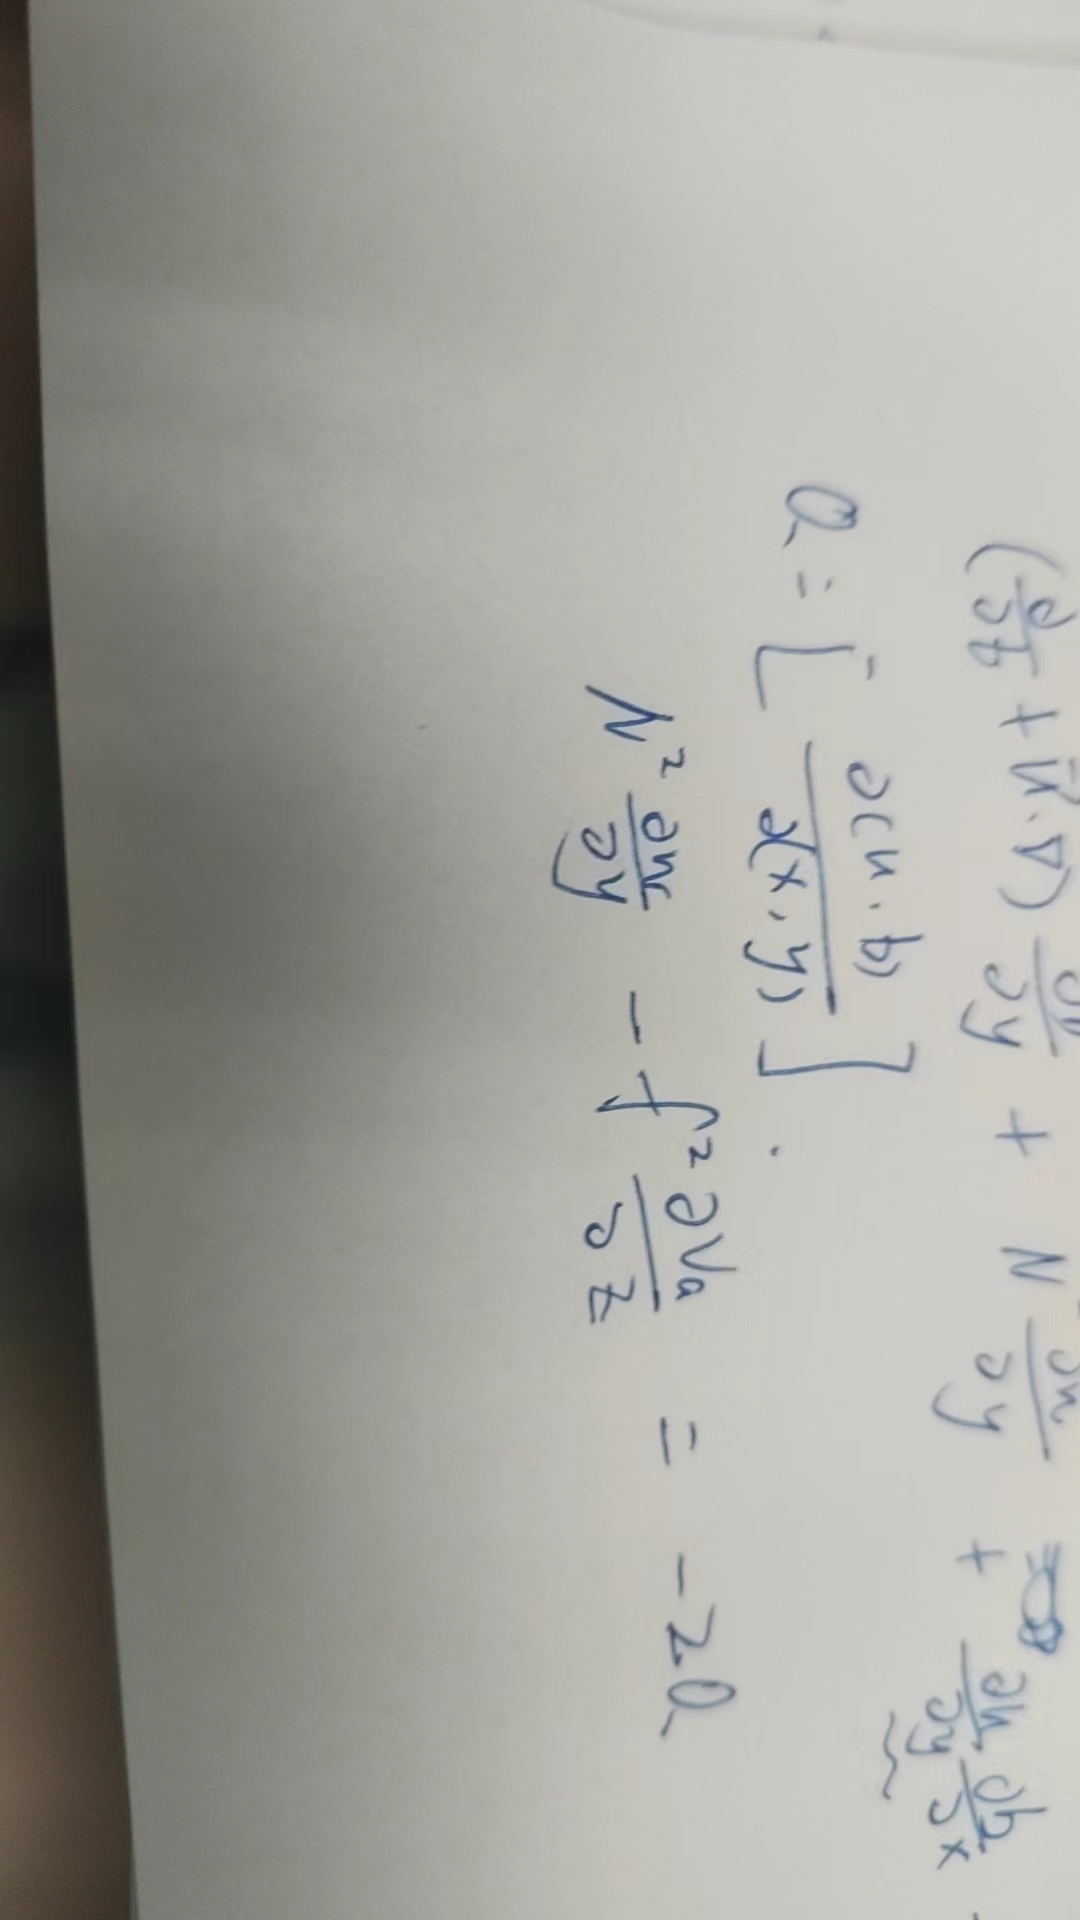 (∂/∂t + ū·∇) ∂b/∂y + N ∂u/∂y + ∂u/∂y ∂b/∂x
Q = [- ∂(u·b)/∂(x,y)].
N² ∂w/∂y - f² ∂Va/∂z = -2Q